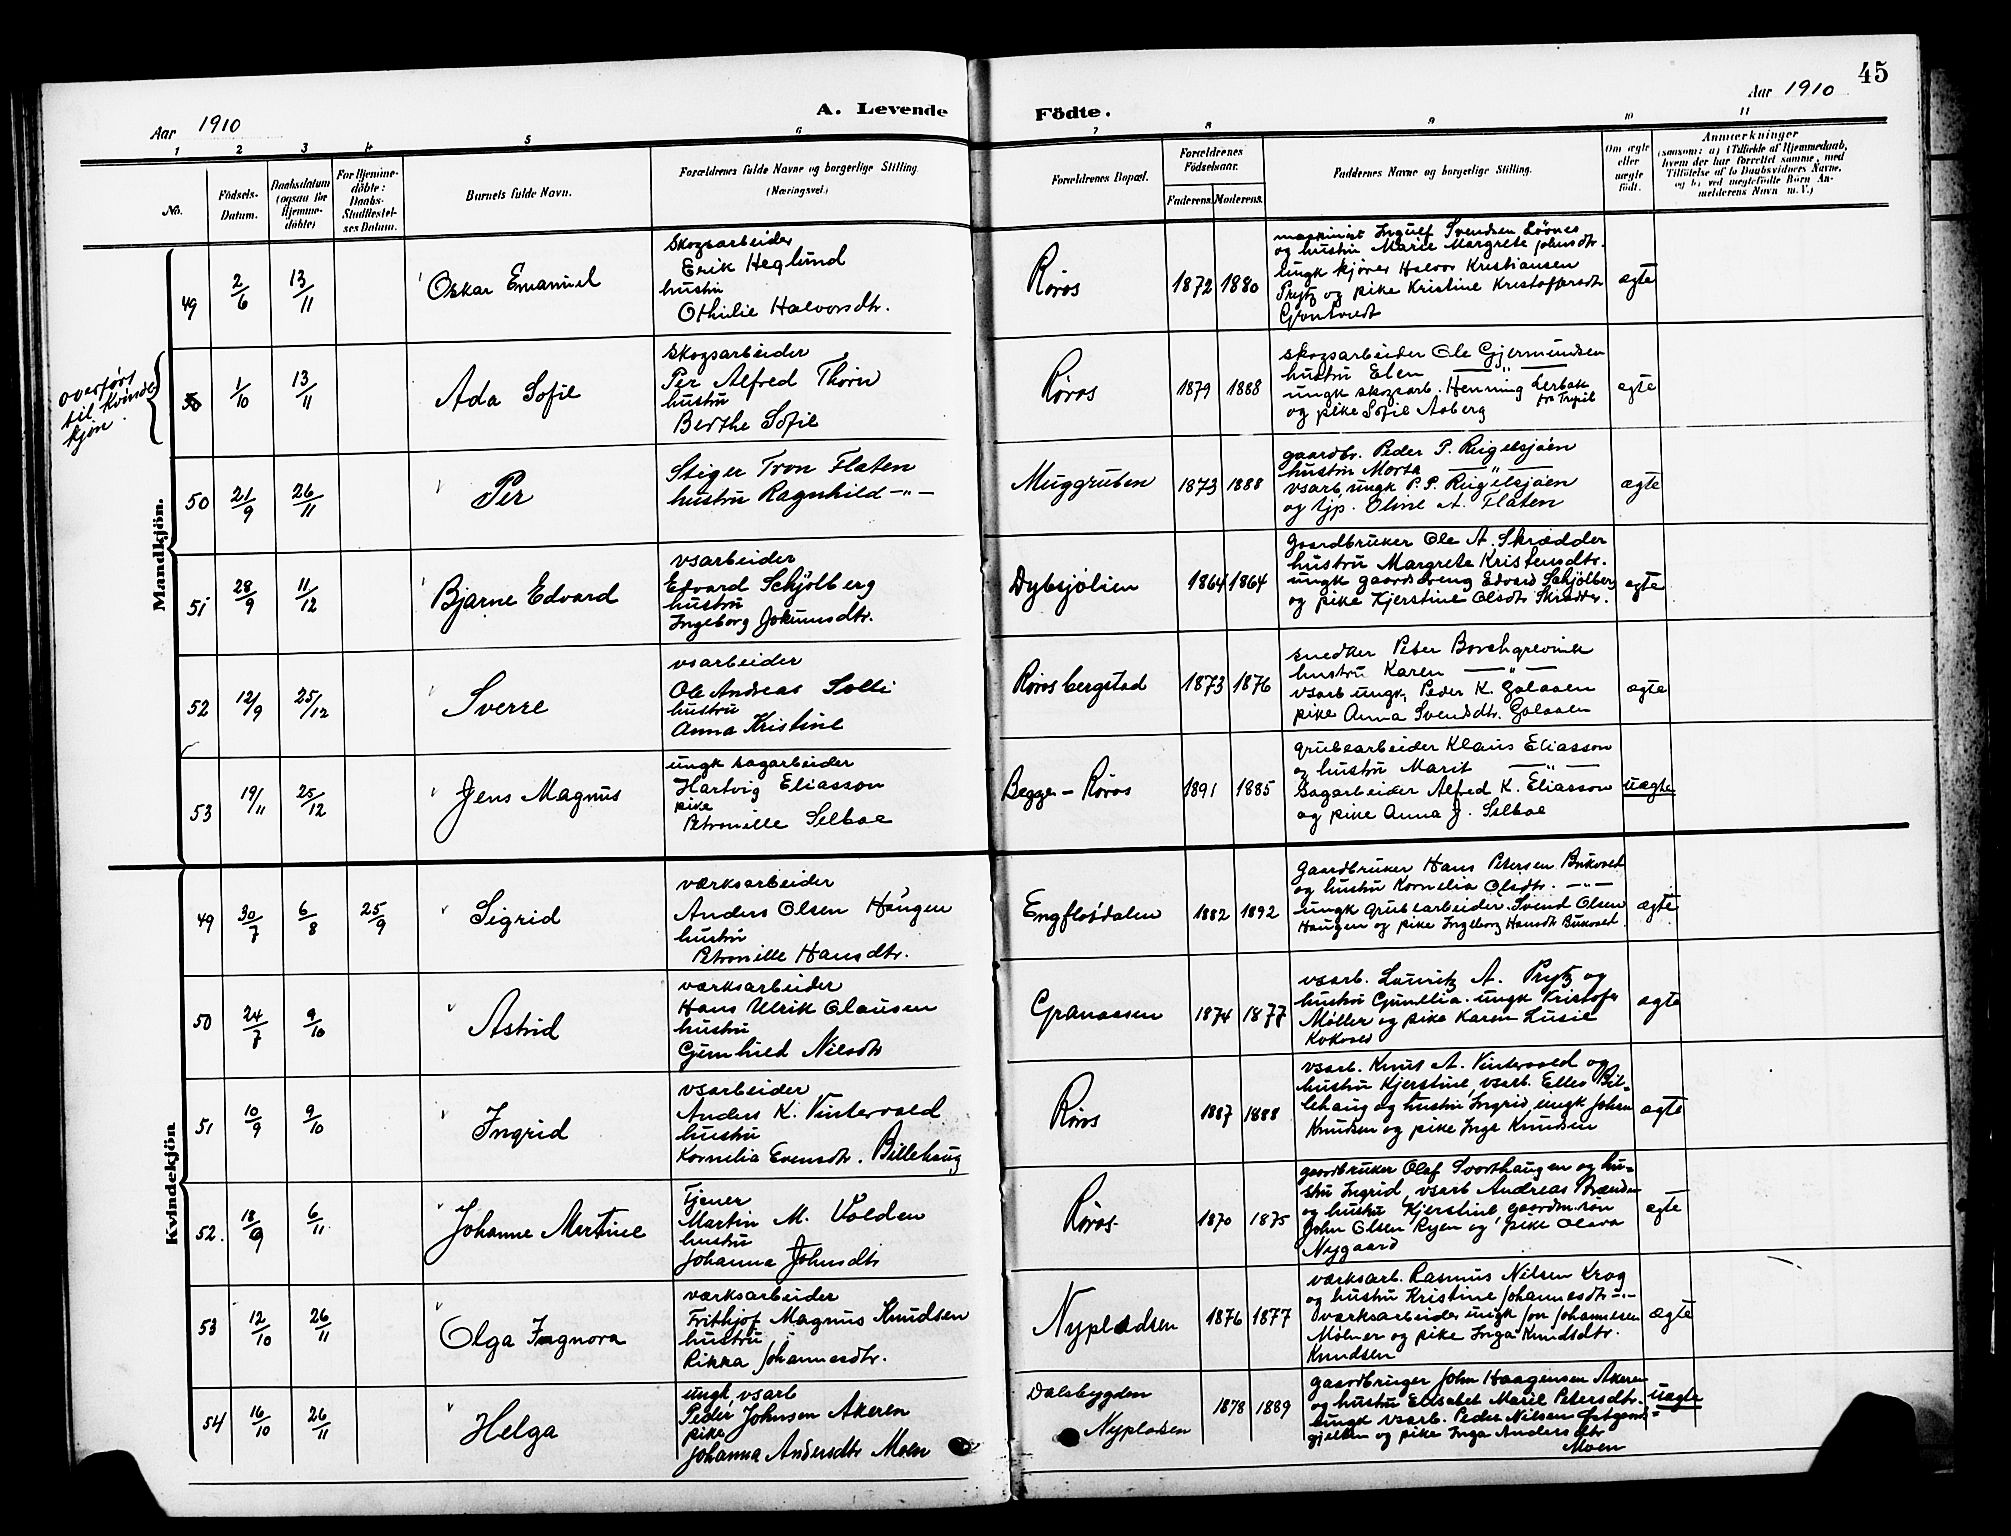 45
Aar 1910
A. Levende Födte.
Aar 1910
1 2 3 4 5 6 7 8 9 10 11
No.
Födsels-Datum.
Daabsdatum (ogsaa for Hjemme-döbte)
For Hjemme-döbte: Daabs-Stadfæstel-ses Datum.
Barnets fulde Navn.
Forældrenes fulde Navne og borgerlige Stilling (Næringsvei.)
Forældrenes Bopæl.
Forældrenes Födselsaar.
Faderens. Moderens.
Faddernes Navne og borgerlige Stilling.
Om ægte eller uægte födt.
Anmærkninger
(saasom: a) i Tilfælde af Hjemmedaab,
hvem der har forrettet samme, med
Tilföielse af to Daabsvidners Navne,
og b) ved uægtefödte Börn An-
melderens Navn m. V.)
Mandkjön.
49 2/6 13/11 Oskar Emanuel
Skogsarbeider
Erik Heglund
hustru
Othilie Halvorsdtr.
Røros 1872 1880
maskinist Ingulf Svendsen Løvnes
og hustru Marie Margrete Johnsdtr.
Ungk kjører Halvor Kristiansen
Prytz og pike Kristine Kristofersdtr
ægte
overført
til Kvinde
kjøn
50 1/10 13/11 Ada Sofie
Skogsarbeider
Per Alfred Thorn
hustru
Berthe Sofie
Røros 1879 1888
skogsarbeider Ole Gjermundsen
hustru Elen —"—
ungk skogsarb. Henning Lerbak
fra Trysil
og pike Sofie Aaberg
ægte
50 21/9 26/11 Per
Stiger Tron Flaten
hustru Ragnhild —"—
Muggruben 1873 1888
gaardbr. Peder P. Rugelsjøen
hustru Marta —"—
vsarb. ungk P. P. Rugelsjøen
og tjp. Oline A. Flaten
ægte
51 28/9 11/12 Bjarne Edvard
vsarbeider
Edvard Schjølberg
hustru
Ingeborg Jokumsdtr.
Dybsjølien 1864 1864
Gaardbruker Ole A. Skrædder
hustru Margrete Kristensdtr.
ungk gaardsdreng Edvard Schjølberg
og pike Kjerstine Olsdtr Skrædder.
ægte
52 12/9 25/12 Sverre
vsarbeider
Ole Andreas Solli
hustru
Anna Kristine
Røros bergstad 1873 1876
snedker Peter Borchgrevink
hustru Karen —"—
vsarb ungk. Peder K. Galaaen
pike Anna Svendsdtr. Galaaen
ægte
53 19/11 25/12 Jens Magnus
ungk sagarbeider
Hartvig Eliasson
pike
Petronille Selboe
Begge – Røros 1891 1885
grubearbeider Klaus Eliasson
og hustru Marit —"—
Sagarbeider Alfred K. Eliasson
og pike Anna J. Selboe
uægte
Kvindekjön
49 30/7 6/8 25/9 Sigrid
værksarbeider
Anders Olsen Haugen
hustru
Petronille Hansdtr.
Engflødalen 1882 1892
Gaardbruker Hans Petersen Bukvold
og hustru Kornelia Olsdtr. —"—
ungk grubearbeider Svend Olsen
Haugen og pike Ingeborg Hansdtr Bukvold
ægte
50 24/7 9/10 Astrid
værksarbeider
Hans Ulrik Clausen
hustru
Gunhild Nilsdtr
Granaasen 1874 1877
vsarb. Lauritz A. Prytz og
hustru Gunelia. ungk Kristofer
Møller og pike Karen Lusie
ægte
51 10/9 9/10 Ingrid
vsarbeider
Anders K. Vintervold
hustru
Kornelia Evensdtr. Billehaug
Røros 1887 1888
vsarb. Knut A. Vintervold og
hustru Kjerstine, vsarb. Elles Bil-
lehaug og hustru Ingrid, ungk Johan
Knudsen og pike Inga Knudsen
ægte
52. 18/9 6/11 Johanne Martine
Tjener
Martin M. Volden
hustru
Johanna Johnsdtr
Røros 1870 1875
gaardbruker Olaf Svorthaugen og hu-
stru Ingrid, vsarb Andreas Brænden
og hustru Kjerstine gaardm. søn
John Olsen Ryen og pike Olava
Nygaard
ægte
53 12/10 26/11 Olga Ingnora
værksarbeider
Frithjof Magnus Knudsen
hustru
Rikka Johannesdtr.
Nypladsen 1876 1877
værksarb. Rasmus Nilsen Krog
og hustru Kristine Johannesdtr —"—
værksarbeider ungk Jon Johannesen
Mølner og pike Inga Knudsdtr.
Knudsen
ægte
54 16/10 26/11 Helga
ungk, vsarb
Peder Johnsen Akeren
pike
Johanna Andersdtr Moen
Dalsbygden
Nypladsen
1878 1889
gaardbruger John Haagensen Akeren
og hustru Elisabet Marie Petersdtr.
ungk vsarb. Peder Nilsen
og pike Inga Andersdtr
Moen
uægte